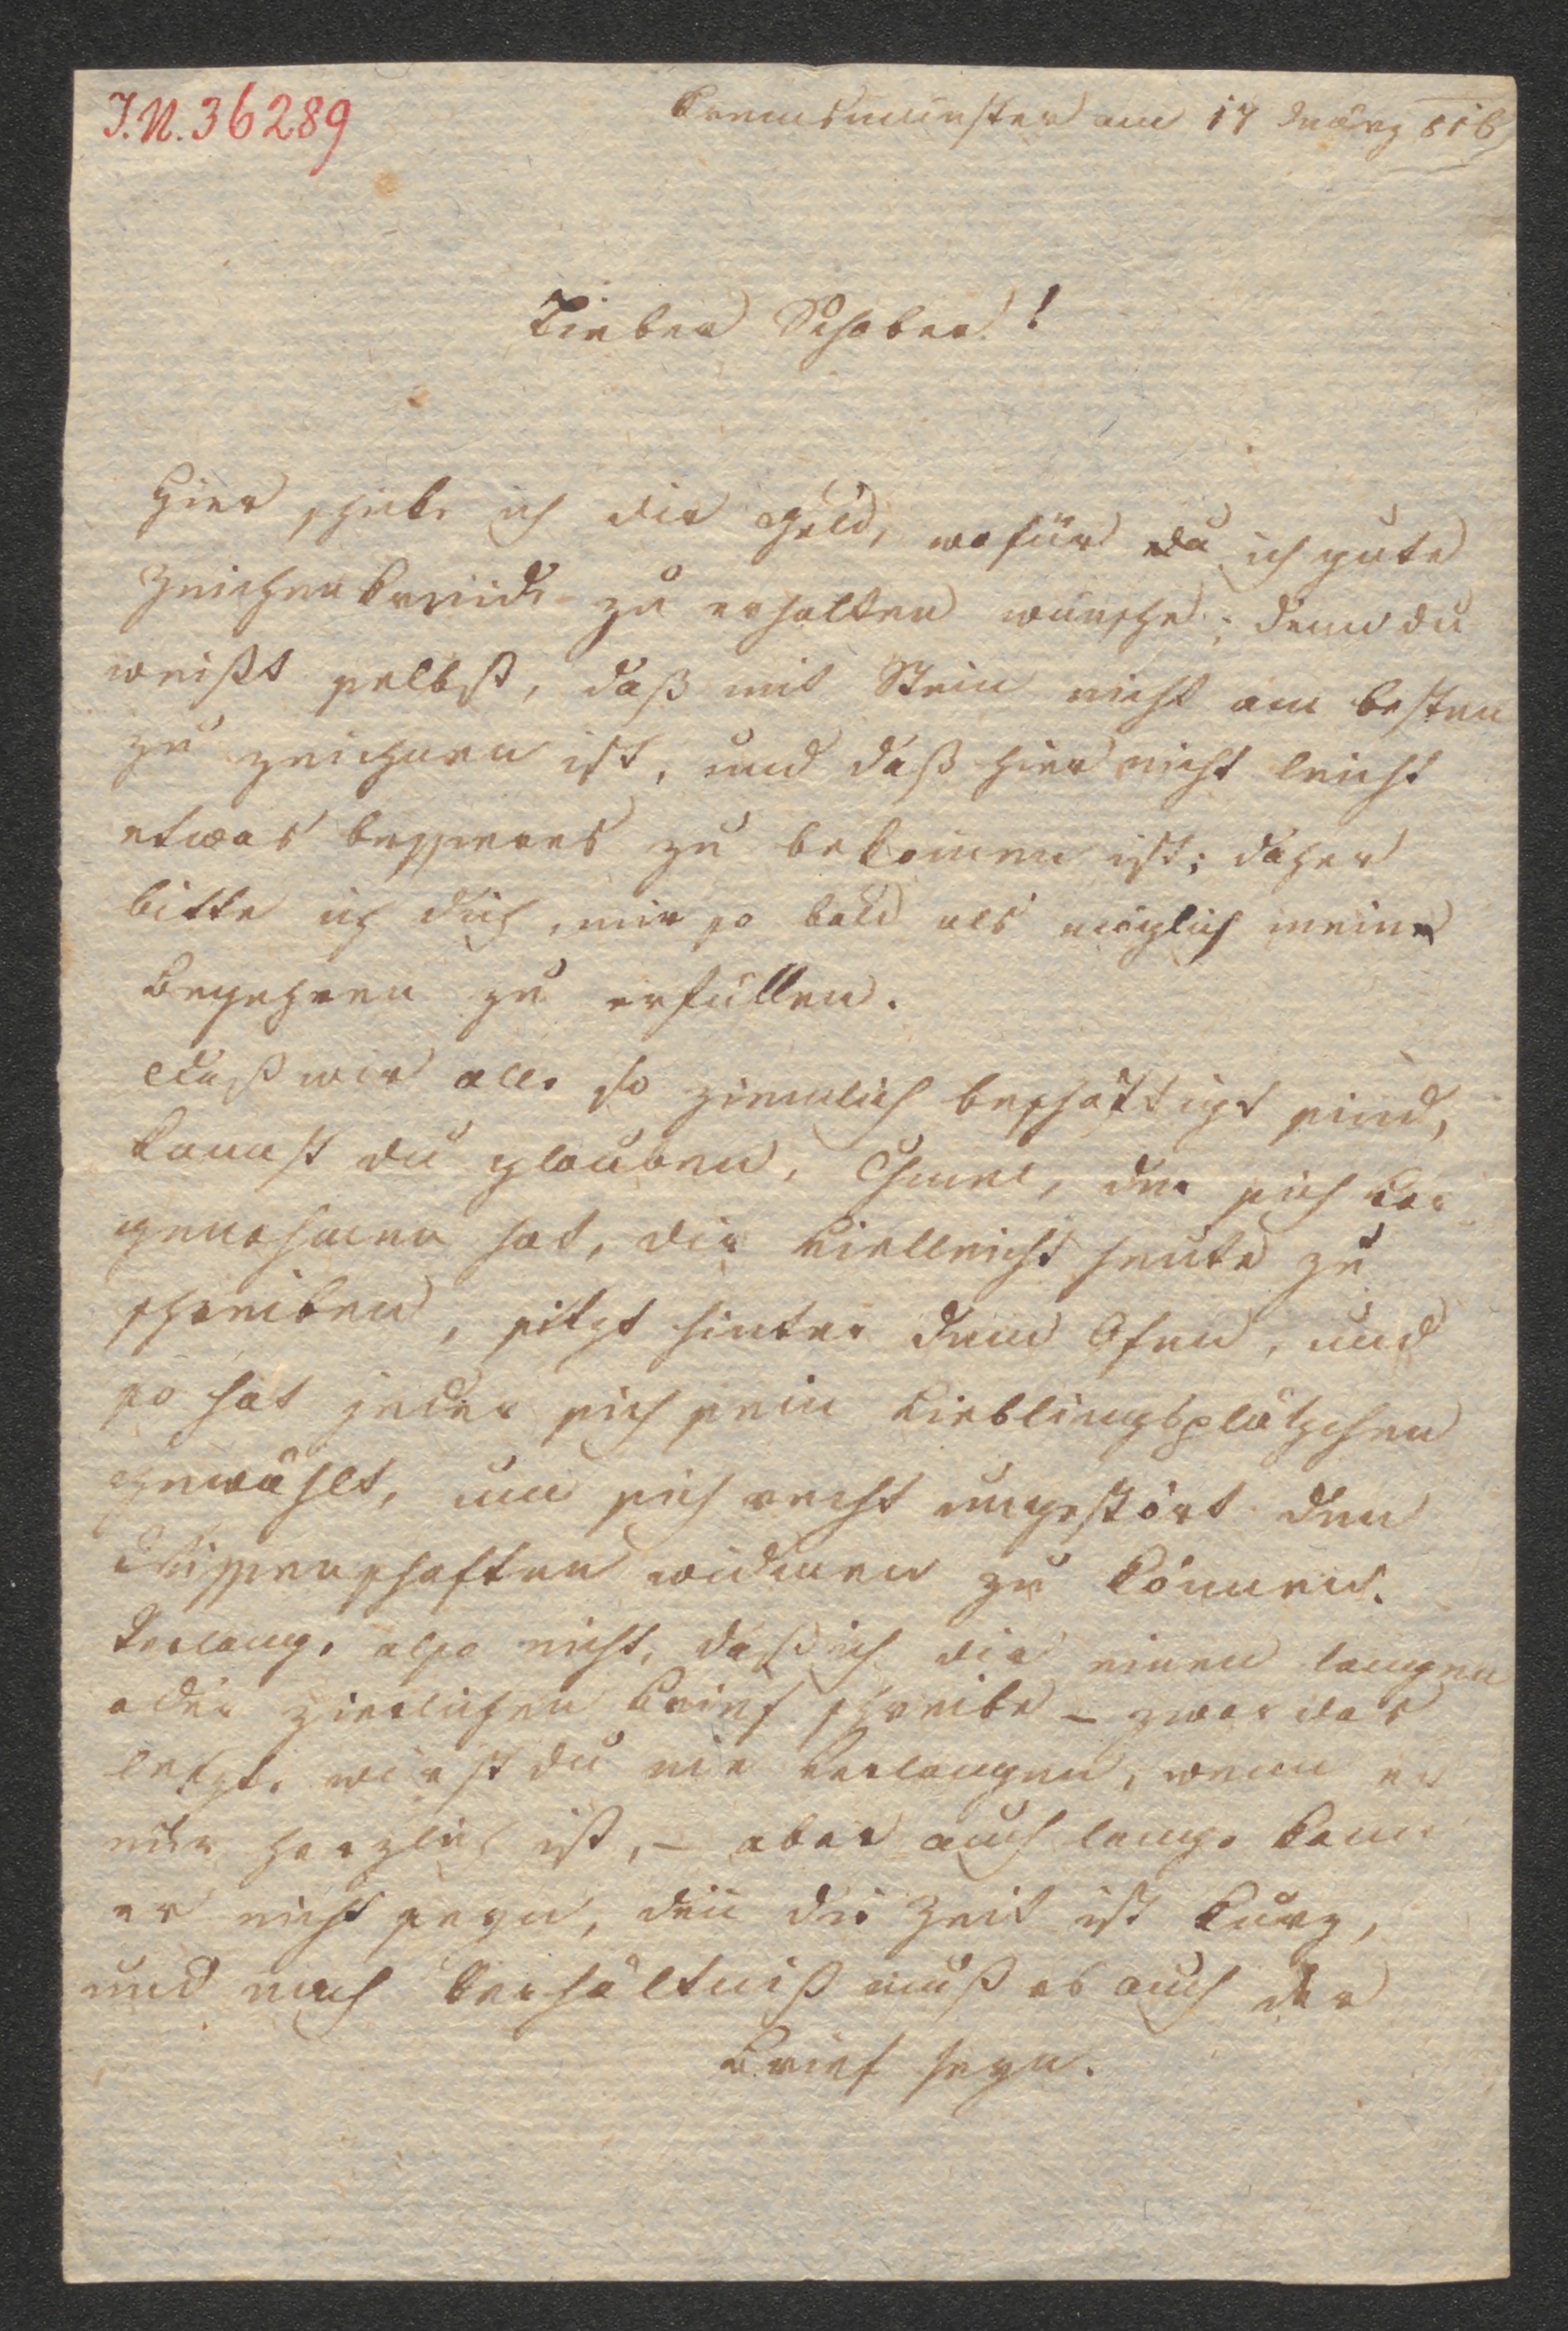 J.N. 36289
Kremsmünster am 17 März 816
Lieber Schober!
Hier schicke ich dir Geld, wofür du ich gute
Zeichenkreide zu erhalten wünsche; denn du
weißt selbst, daß mit Stein nicht am besten
zu zeichnen ist, und daß hier nicht leicht
etwas besseres zu bekommen ist; daher
bitte ich dich, mir so bald als möglich meine
Begehren zu erfüllen.
Daß wir alle so ziemlich beschäftigt sind,
kannst du glauben, Chmel, der sich vor
genohmen hat, dir vielleicht heute zu
schreiben, sitzt hinter dem Ofen, und
so hat jeder sich sein Lieblingsplätzchen
gewählt, um sich recht ungestört den
Wissenschaften widmen zu können.
Verlange also nicht, daß ich dir einen langen
oder zierlichen Brief schreibe – zwar das
letzte wirst du nie verlangen, wenn er
nur herzlich ist, – aber auch lange kann
er nicht seyn, deñ die Zeit ist kurz,
und nach Verhältniß muß es auch der
Brief seyn.